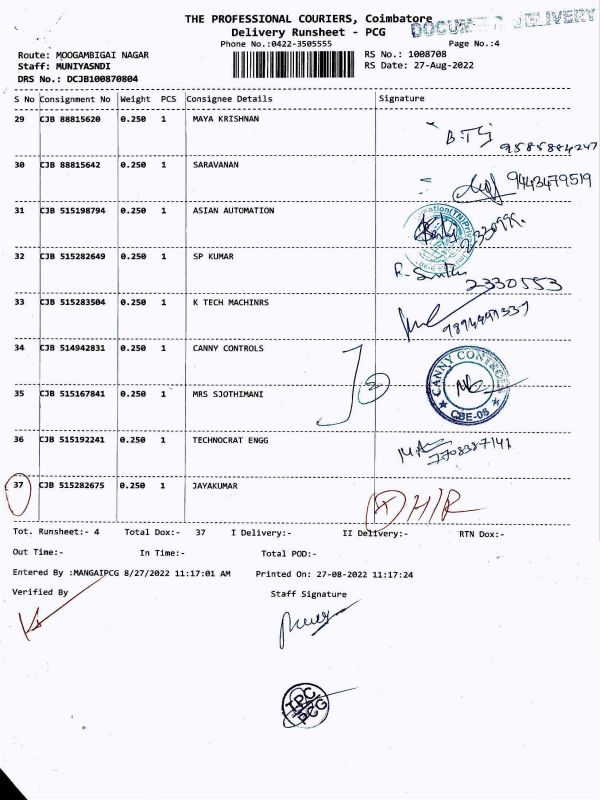 THE PROFESSIONAL COURIERS, Coimbatore
DOCUMENT DELIVERY
Delivery Runsheet - PCG
Phone No.:0422-3505555
Page No.:4
Route: MOOGAMBIGAI NAGAR
RS No.: 1008708
Staff: MUNIYASNDI
RS Date: 27-Aug-2022
DRS No.: DCJB100870804
S No Consignment No Weight PCS Consignee Details Signature
29 CJB 88815620 0.250 1 MAYA KRISHNAN
30 CJB 88815642 0.250 1 SARAVANAN
9443479519
31 CJB 515198794 0.250 1 ASIAN AUTOMATION
32 CJB 515282649 0.250 1 SP KUMAR
2330553
33 CJB 515283504 0.250 1 K TECH MACHINRS
34 CJB 514942831 0.250 1 CANNY CONTROLS
2
CANNY CONTROLS
CBE-05
35 CJB 515167841 0.250 1 MRS SJOTHIMANI
36 CJB 515192241 0.250 1 TECHNOCRAT ENGG
37 CJB 515282675 0.250 1 JAYAKUMAR
Tot. Runsheet:- 4 Total Dox:- 37 I Delivery:- II Delivery:- RTN Dox:-
Out Time:- In Time:- Total POD:-
Entered By :MANGAIPCG 8/27/2022 11:17:01 AM Printed On: 27-08-2022 11:17:24
Verified By Staff Signature
TPC
PCG